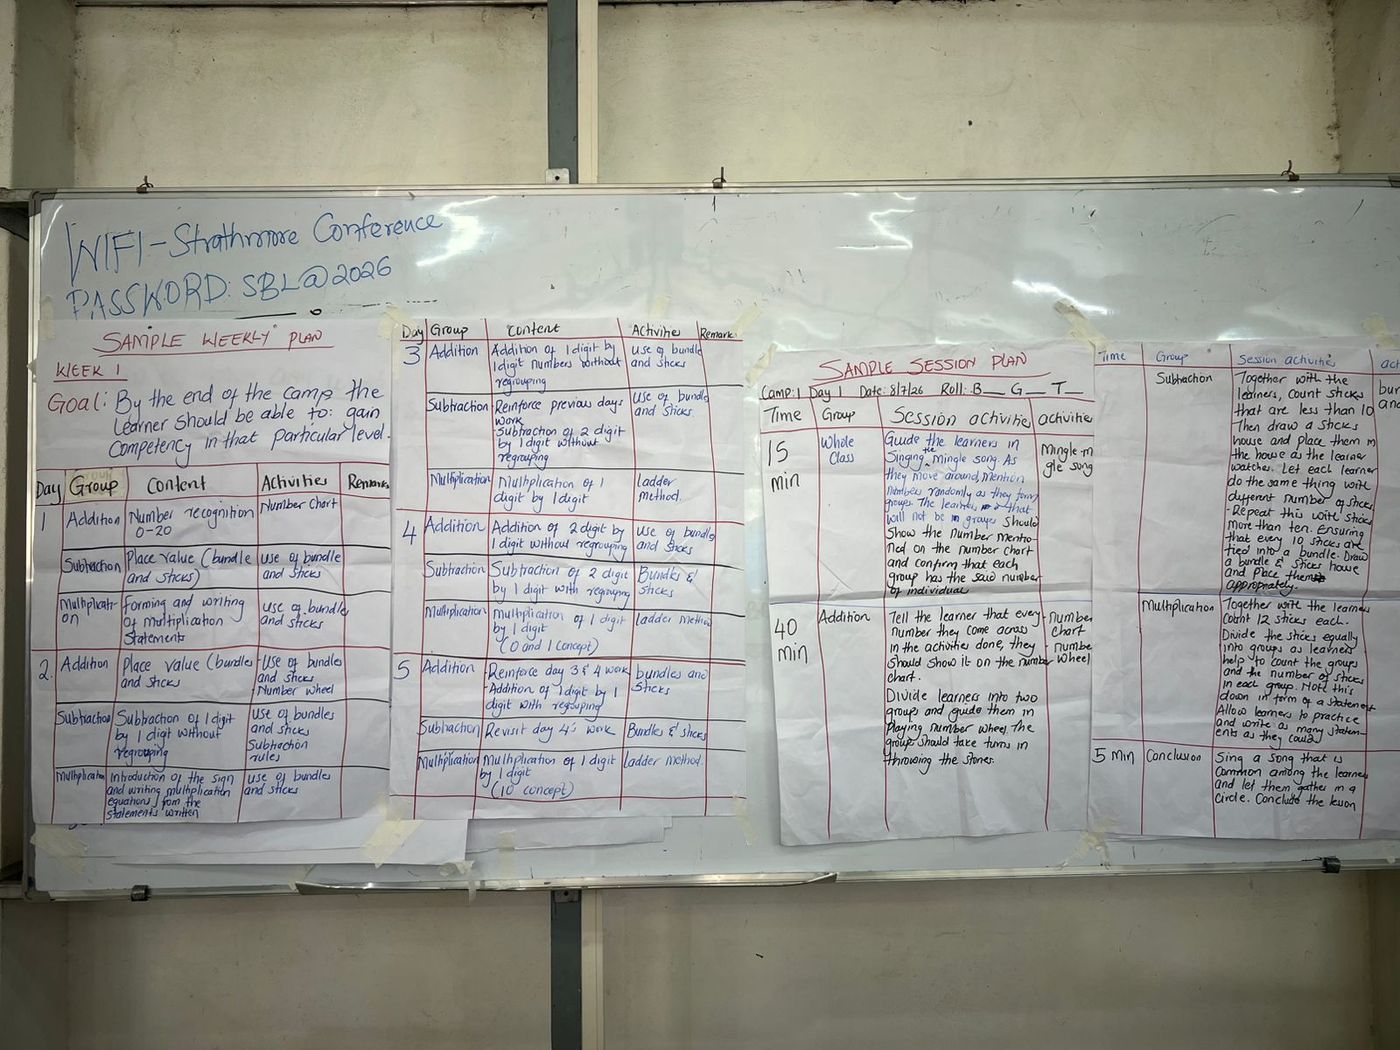 WIFI-Strathmore Conference
PASSWORD: SBL@2026
SAMPLE WEEKLY PLAN
WEEK 1
Goal: By the end of the camp the
learner should be able to: gain
Competency in that particular level.
Day Group Content Activities Remarks
1 Addition Number recognition Number Chart
0-20
Subtraction Place value (bundle use of bundle
and sticks) and sticks
Multiplicati- Forming and writing use of bundle
on of multiplication and sticks
statements
2. Addition Place value (bundles -Use of bundles
and sticks and sticks
-Number wheel
Subtraction Subtraction of 1 digit use of bundles
by 1 digit without and sticks
regrouping Subtraction
rules
Multiplication Introduction of the sign use of bundles
and writing multiplication and sticks
equations from the
statements written
Day Group Content Activities Remark
3 Addition Addition of 1 digit by use of bundle
1 digit numbers without and sticks
regrouping
Subtraction -Reinforce previous days use of bundle
work and sticks.
-Subtraction of 2 digit
by 1 digit without
regrouping
Multiplication Multiplication of 1 Ladder
digit by 1 digit Method.
4 Addition Addition of 2 digit by use of bundle
1 digit without regrouping and sticks
Subtraction Subtraction of 2 digit Bundles &
by 1 digit with regrouping sticks
Multiplication Multiplication of 1 digit Ladder Method
by 1 digit
(0 and 1 concept)
5 Addition -Reinforce day 3 & 4 work bundles and
-Addition of 1 digit by 1 sticks
digit with regrouping
Subtraction Revisit day 4's work Bundles & sticks
Multiplication Multiplication of 1 digit Ladder method.
by 1 digit
(10 concept)
SAMPLE SESSION PLAN
Camp:1 Day 1 Date: 8/7/26 Roll: B__ G__ T__
Time Group Session activities activities
15 min Whole Class
Guide the learners in
Singing the Mingle song. As
they move around, mention
numbers randomly as they form
groups. The learners that
will not be in groups should
show the number mentio-
ned on the number chart
and confirm that each
group has the said number
of individual
Mingle-m
gle song
40 min Addition
Tell the learner that every
number they come across
in the activities done, they
should show it on the number
chart.
Divide learners into two
groups and guide them in
playing number wheel. The
group should take turns in
throwing the stones.
-number
chart
-number
wheel
Time Group Session activities act
Subtraction
Together with the
learners, count sticks
that are less than 10
Then draw a sticks
house and place them in
the house as the learner
watches. Let each learner
do the same thing with
different number of sticks
-Repeat this with sticks
more than ten. Ensuring
that every 10 sticks are
tied into a bundle. Draw
a bundle & sticks house
and place them
appropriately.
bun
and
Multiplication
Together with the learners
count 12 sticks each.
Divide the sticks equally
into groups as learners
help to count the groups
and the number of sticks
in each group. Note this
down in form of a statement
Allow learners to practice
and write as many statem-
ents as they could
5 Min Conclusion
Sing a song that is
common among the learners
and let them gather in a
circle. Conclude the lesson